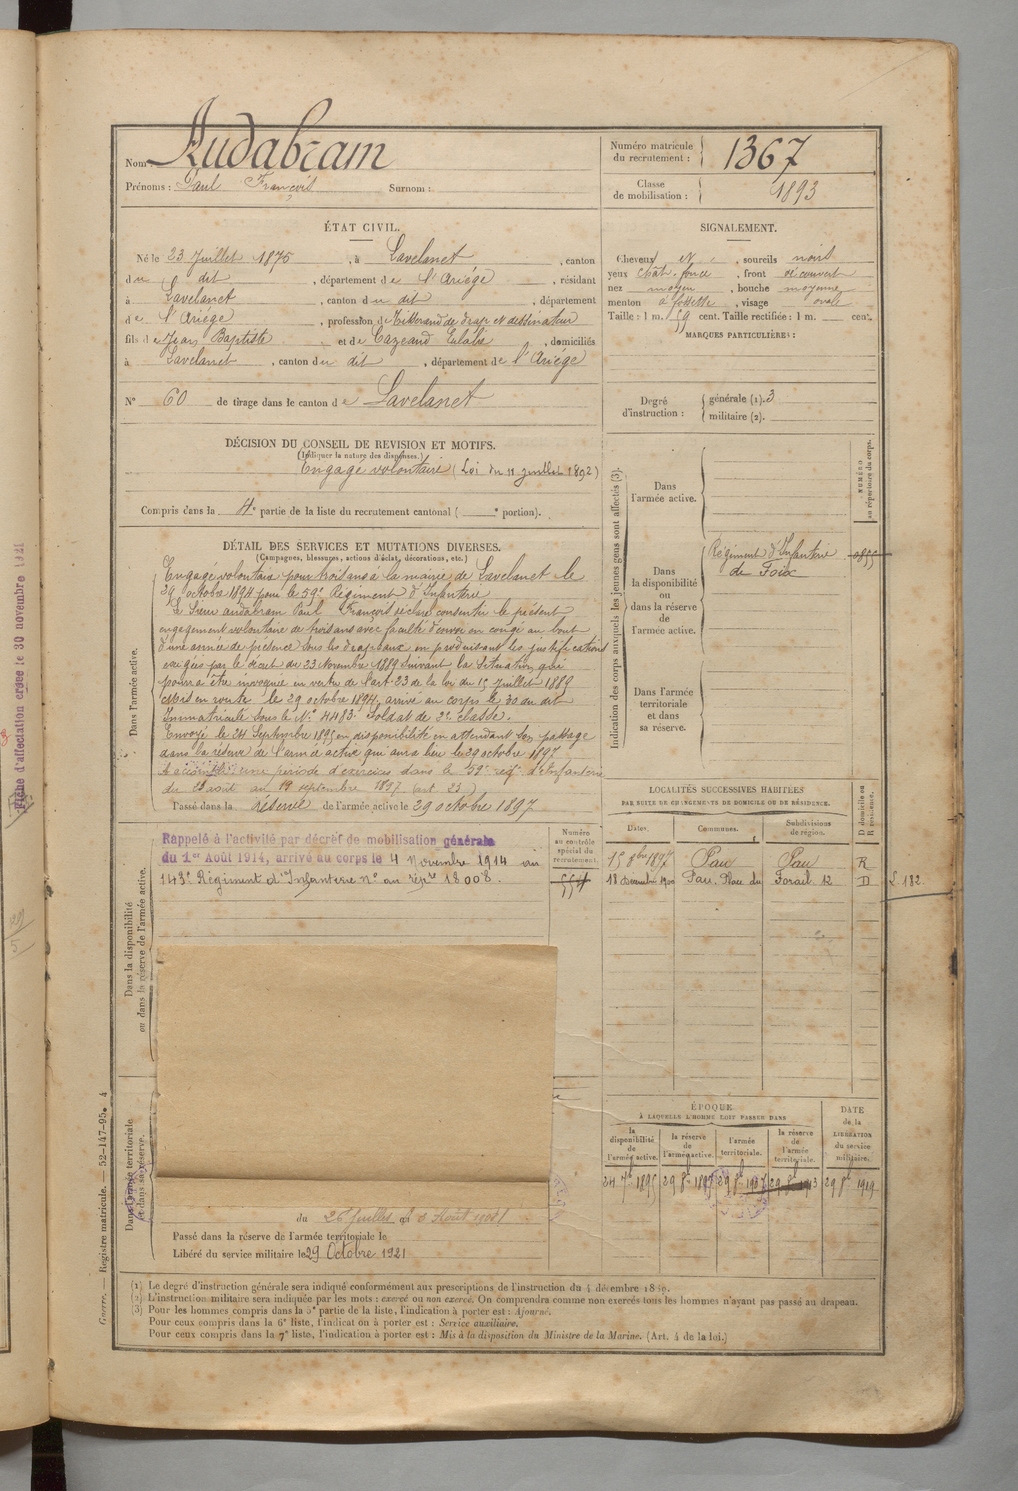 Nom : Audabram
Prénoms : Paul François Surnom :
Numéro matricule du recrutement : 1367
Classe de mobilisation : 1893
ÉTAT CIVIL.
Né le 23 Juillet 1875, à Lavelanet, canton
du dit, département de l'Ariége, résidant
à Lavelanet, canton du dit, département
de l'Ariége, profession de Tisserand de drap et dessinateur
fils de Jean Baptiste et de Cazeaud Eulalie, domiciliés
à Lavelanet, canton du dit, département de l'Ariége
N° 60 de tirage dans le canton de Lavelanet
SIGNALEMENT.
Cheveux et , sourcils noirs
yeux chât. foncé, front découvert
nez moyen, bouche moyenne
menton à fossette, visage ovale
Taille : 1 m. 59 cent. Taille rectifiée : 1 m. cent.
MARQUES PARTICULIÈRES :
Degré d'instruction : générale (1). 3
militaire (2).
DÉCISION DU CONSEIL DE REVISION ET MOTIFS.
(Indiquer la nature des dispenses.)
Engagé volontaire (Loi du 11 juillet 1892)
Compris dans la 4e partie de la liste du recrutement cantonal ( e portion).
DÉTAIL DES SERVICES ET MUTATIONS DIVERSES.
(Campagnes, blessures, actions d'éclat, décorations, etc.)
Dans l'armée active.
Engagé volontaire pour trois ans à la mairie de Lavelanet le
29 octobre 1894 pour le 59e Régiment d'Infanterie
Le Sieur audabram Paul François déclare consentir le présent
engagement volontaire de trois ans avec faculté d'envoi en congé au bout
d'une année de présence sous les drapeaux en produisant les justifications
exigées par le décret du 23 Novembre 1889 suivant la situation qui
pourra être invoquée en vertu de l'art. 23 de la loi du 15 Juillet 1889
Mis en route le 29 octobre 1894, arrivé au corps le 30 du dit
Immatriculé sous le N° 4483. Soldat de 2e classe.
Envoyé le 24 Septembre 1895 en disponibilité en attendant son passage
dans la réserve de l'armée active qui aura lieu le 29 octobre 1897
A accompli une période d'exercices dans le 59e rég. d'Infanterie
du août au 19 septembre 1897 (art 23)
Passé dans la réserve de l'armée active le 29 octobre 1897
Indication des corps auxquels les jeunes gens sont affectés (3).
NUMÉRO au répertoire du corps.
Dans l'armée active.
Dans la disponibilité ou dans la réserve de l'armée active.
Régiment d'Infanterie
de Foix
Dans l'armée territoriale et dans sa réserve.
Dans la disponibilité ou dans la réserve de l'armée active.
Rappelé à l'activité par décret de mobilisation générale
du 1er Août 1914, arrivé au corps le 4 Novembre 1914 au
143e Régiment d'Infanterie n° au répre 18008.
Numéro au contrôle spécial du recrutement.
554
LOCALITÉS SUCCESSIVES HABITÉES
PAR SUITE DE CHANGEMENTS DE DOMICILE OU DE RÉSIDENCE.
Dates. Communes. Subdivisions de région. D domicile ou R résidence.
15 8bre 1897 Pau Pau R
18 Décembre 1900 Pau, Place du Foirail 12 D
L 182.
ÉPOQUE
À LAQUELLE L'HOMME DOIT PASSER DANS
la disponibilité de l'armée active. la réserve de l'armée active. l'armée territoriale. la réserve de l'armée territoriale.
DATE de la LIBÉRATION du service militaire.
24 7bre 1895 29 8bre 1897 29 8bre 1907 29 8bre 1913 29 8bre 1919
Dans l'armée territoriale et dans sa réserve.
du 26 Juillet au 3 Août 1908
Passé dans la réserve de l'armée territoriale le
Libéré du service militaire le 29 Octobre 1921
(1) Le degré d'instruction générale sera indiqué conformément aux prescriptions de l'instruction du 4 décembre 1889.
(2) L'instruction militaire sera indiquée par les mots : exercé ou non exercé. On comprendra comme non exercés tous les hommes n'ayant pas passé au drapeau.
(3) Pour les hommes compris dans la 5e partie de la liste, l'indication à porter est : Ajourné.
Pour ceux compris dans la 6e liste, l'indication à porter est : Service auxiliaire.
Pour ceux compris dans la 7e liste, l'indication à porter est : Mis à la disposition du Ministre de la Marine. (Art. 4 de la loi.)
Guerre. — Registre matricule. — 52-147-95. 4
Fiche d'affectation créée le 30 novembre 1921